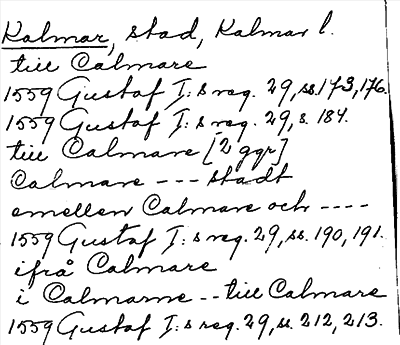 Kalmar, stad, Kalmar l.
till Calmare
1559 Gustaf I:s reg. 29, ss. 173, 176.
1559 Gustaf I:s reg. 29, s. 184.
till Calmare [2 ggr]
Calmare --- stadt
emellen Calmare och ----
1559 Gustaf I:s reg. 29, ss. 190, 191.
ifrå Calmare
i Calmarne -- till Calmare
1559 Gustaf I:s reg. 29, ss. 212, 213.